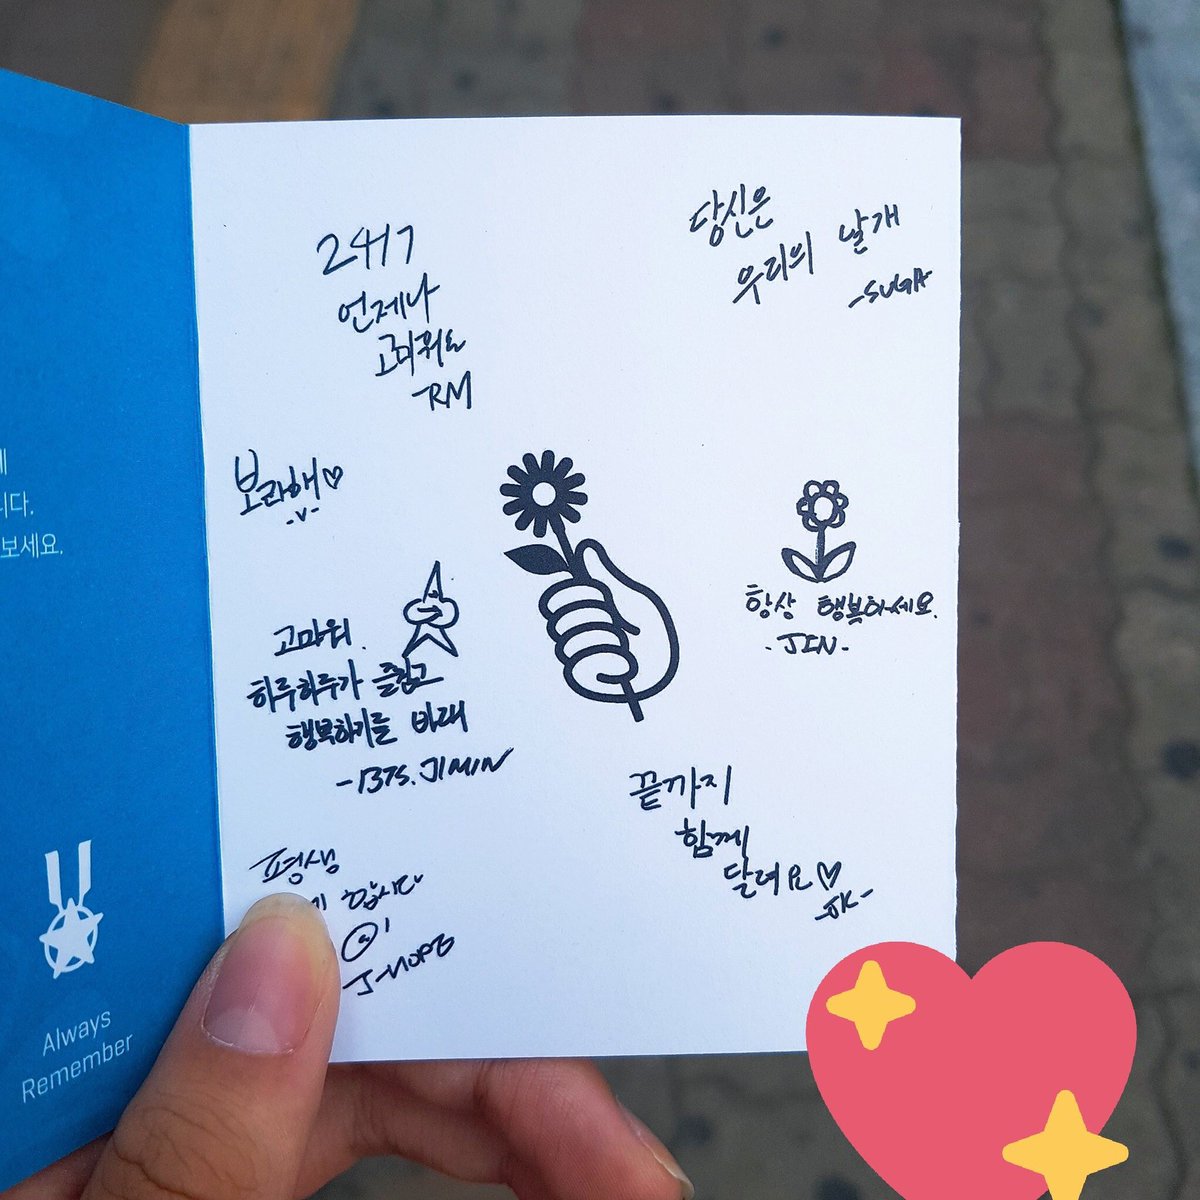 24/7
언제나
고마워요
-RM
당신은
우리의 날개
-SUGA
보라해♡
-V-
고마워.
하루하루가 즐겁고
행복하기를 바래
-BTS.JIMIN
항상 행복하세요.
-JIN-
끝까지
함께
달려요♡
-JK-
평생
합시다
J-HOPE
니다.
보세요.
Always
Remember